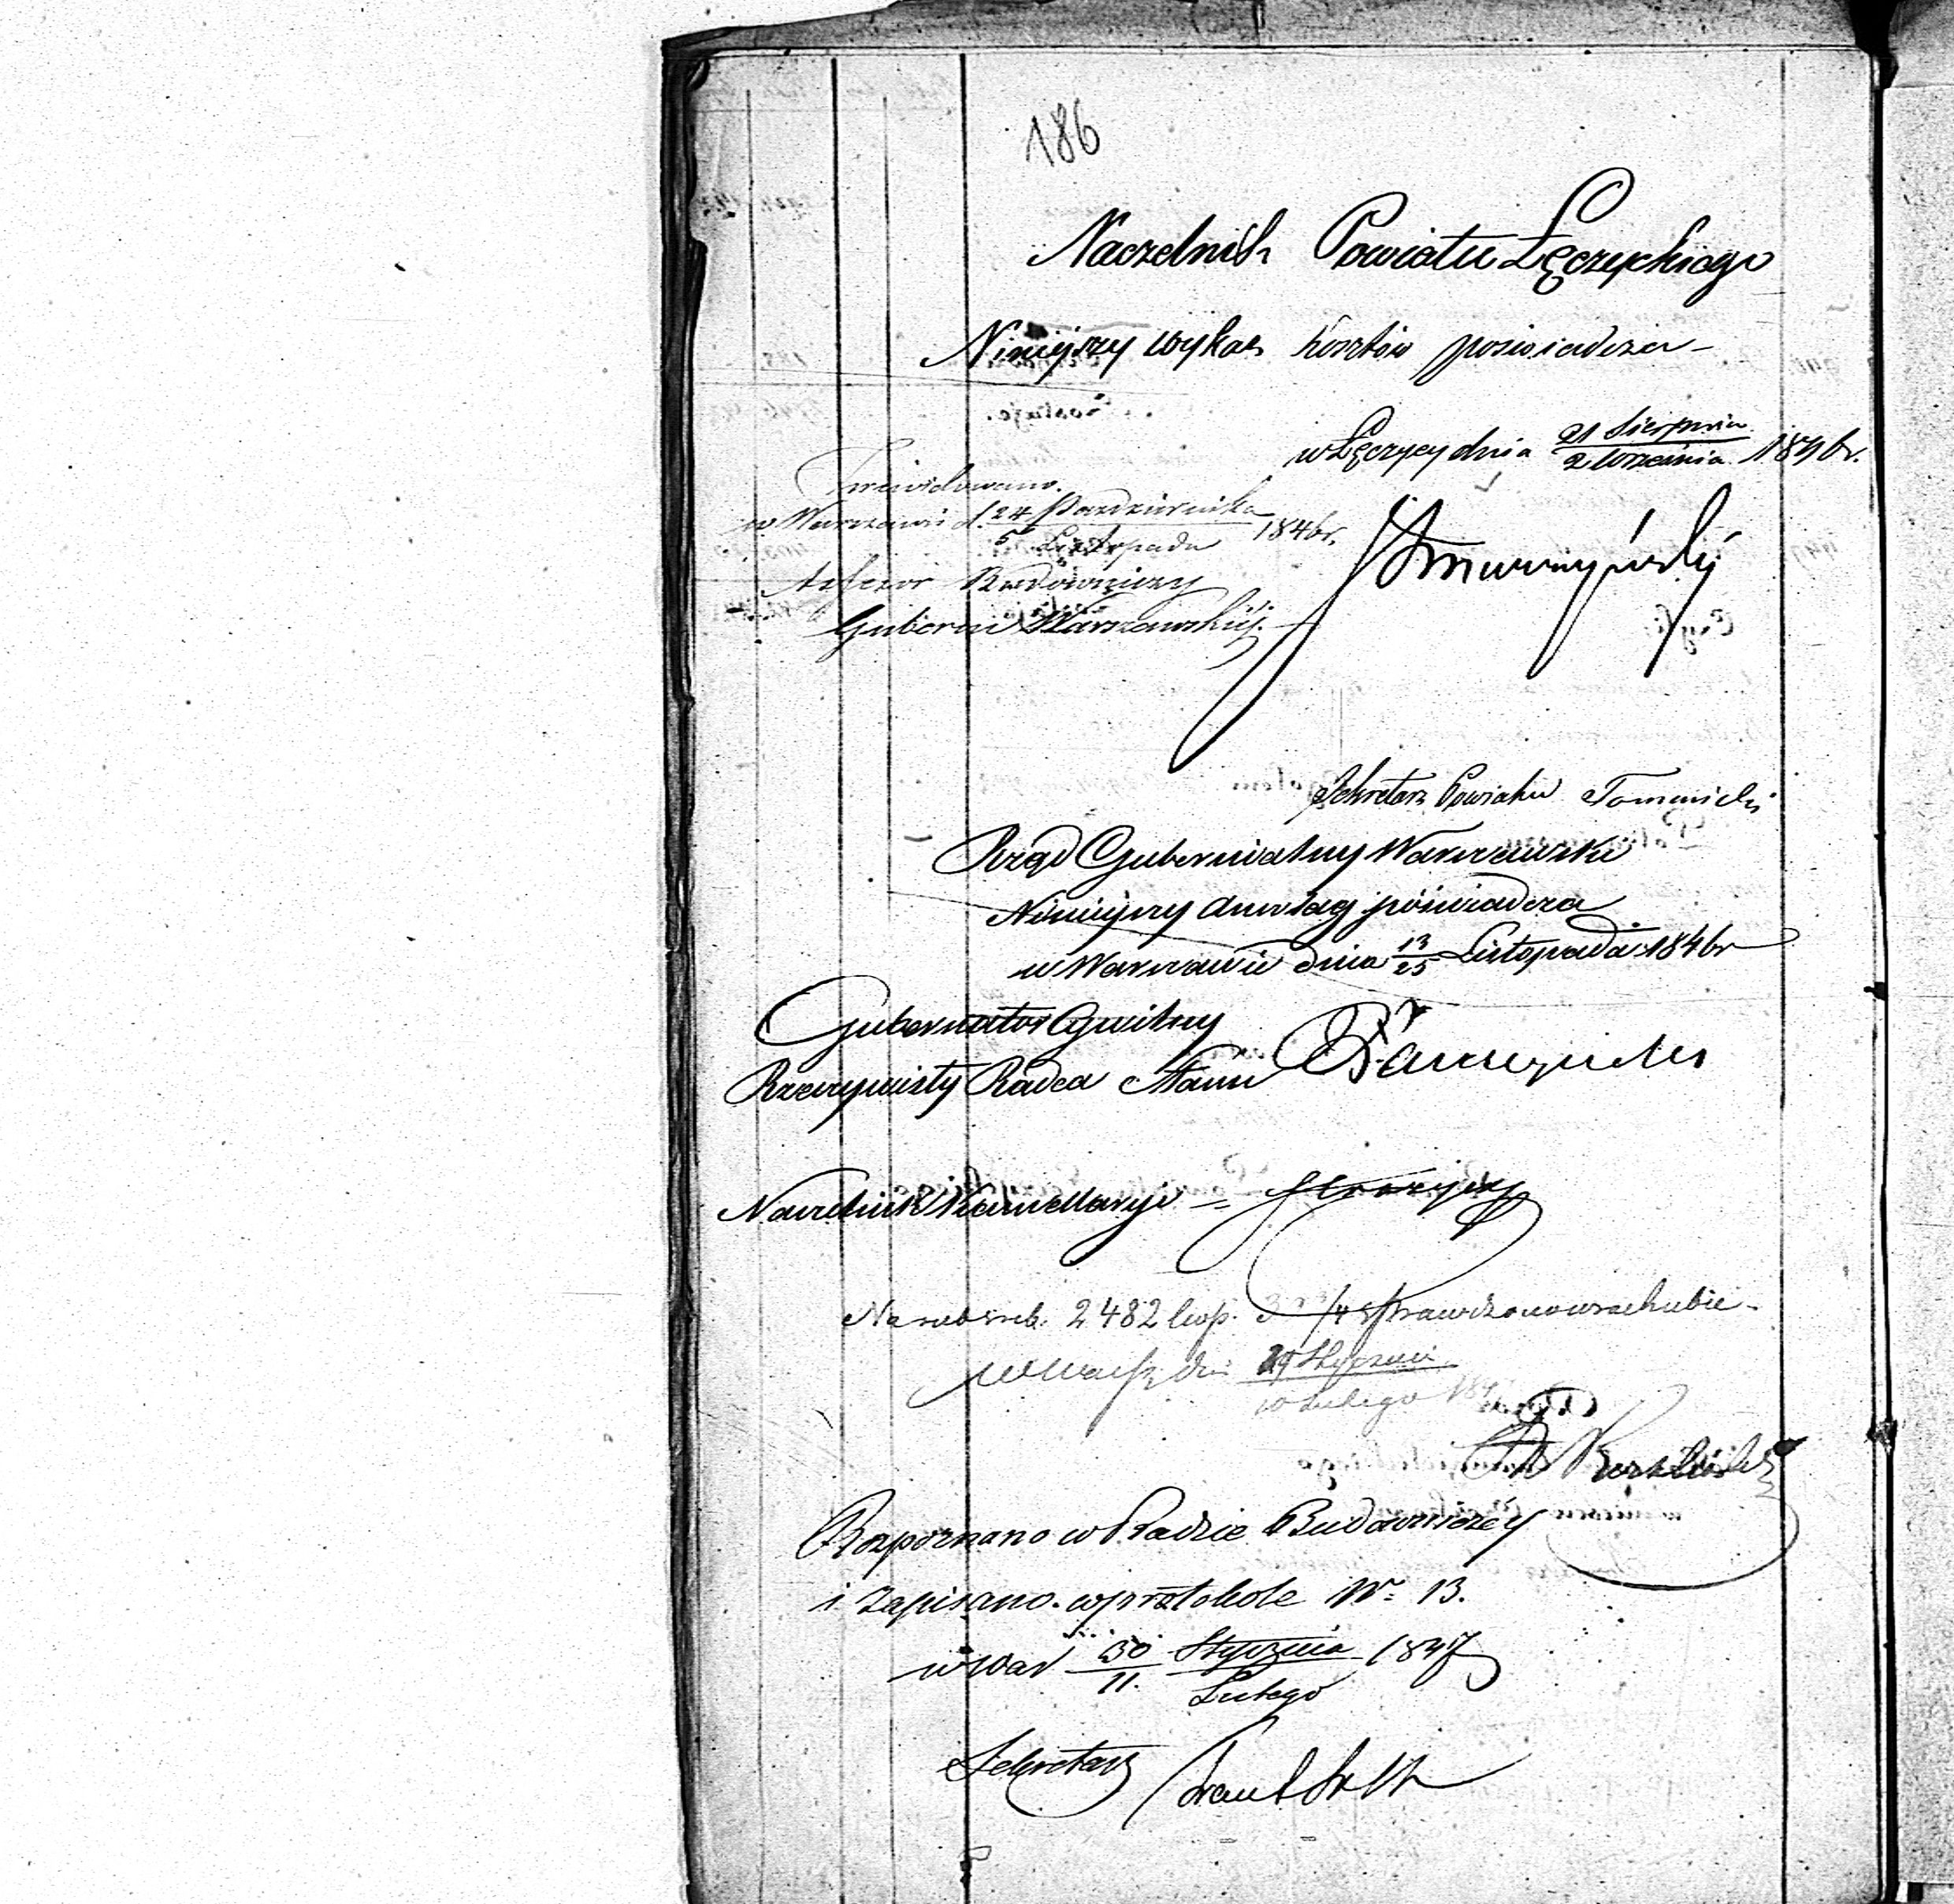 186
Naczelnik Powiatu Łęczyckiego
Niniejszy wykaz kosztów poświadcza
w Łęczycy dnia 21 Sierpnia / 2 Września 1846 r.
Zrewidowano.
w Warszawie d. 24 Października / 5 Listopada 1846 r.
Assessor Budowniczy
Gubernii Warszawskiéj.
Sekretarz Powiatu
Rząd Gubernialny Warszawski
Niniejszy anszlag poświadcza
w Warszawie dnia 13/25 Listopada 1846 r
Gubernator Cywilny
Rzeczywisty Radca Stanu
Naczelnik Kancellaryi
Na rub sreb. 2482 kop. sprawdzono w rachubie
29 Stycznia
10 Lutego 184
Rozpoznano w Radzie Budowniczéy
i zapisano w protokole Nr 13.
w War 30 Stycznia / 11. Lutego 1847
Sekretarz